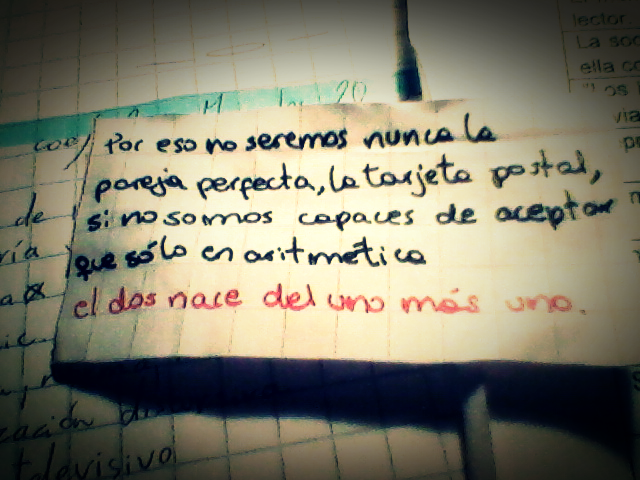 lector
La soc
ella co
via
20
Por eso no seremos nunca la
pareja perfecta, la tarjeta postal,
si no somos capaces de aceptar
que sólo en aritmética
el dos nace del uno más uno.
de
ría
televisivo